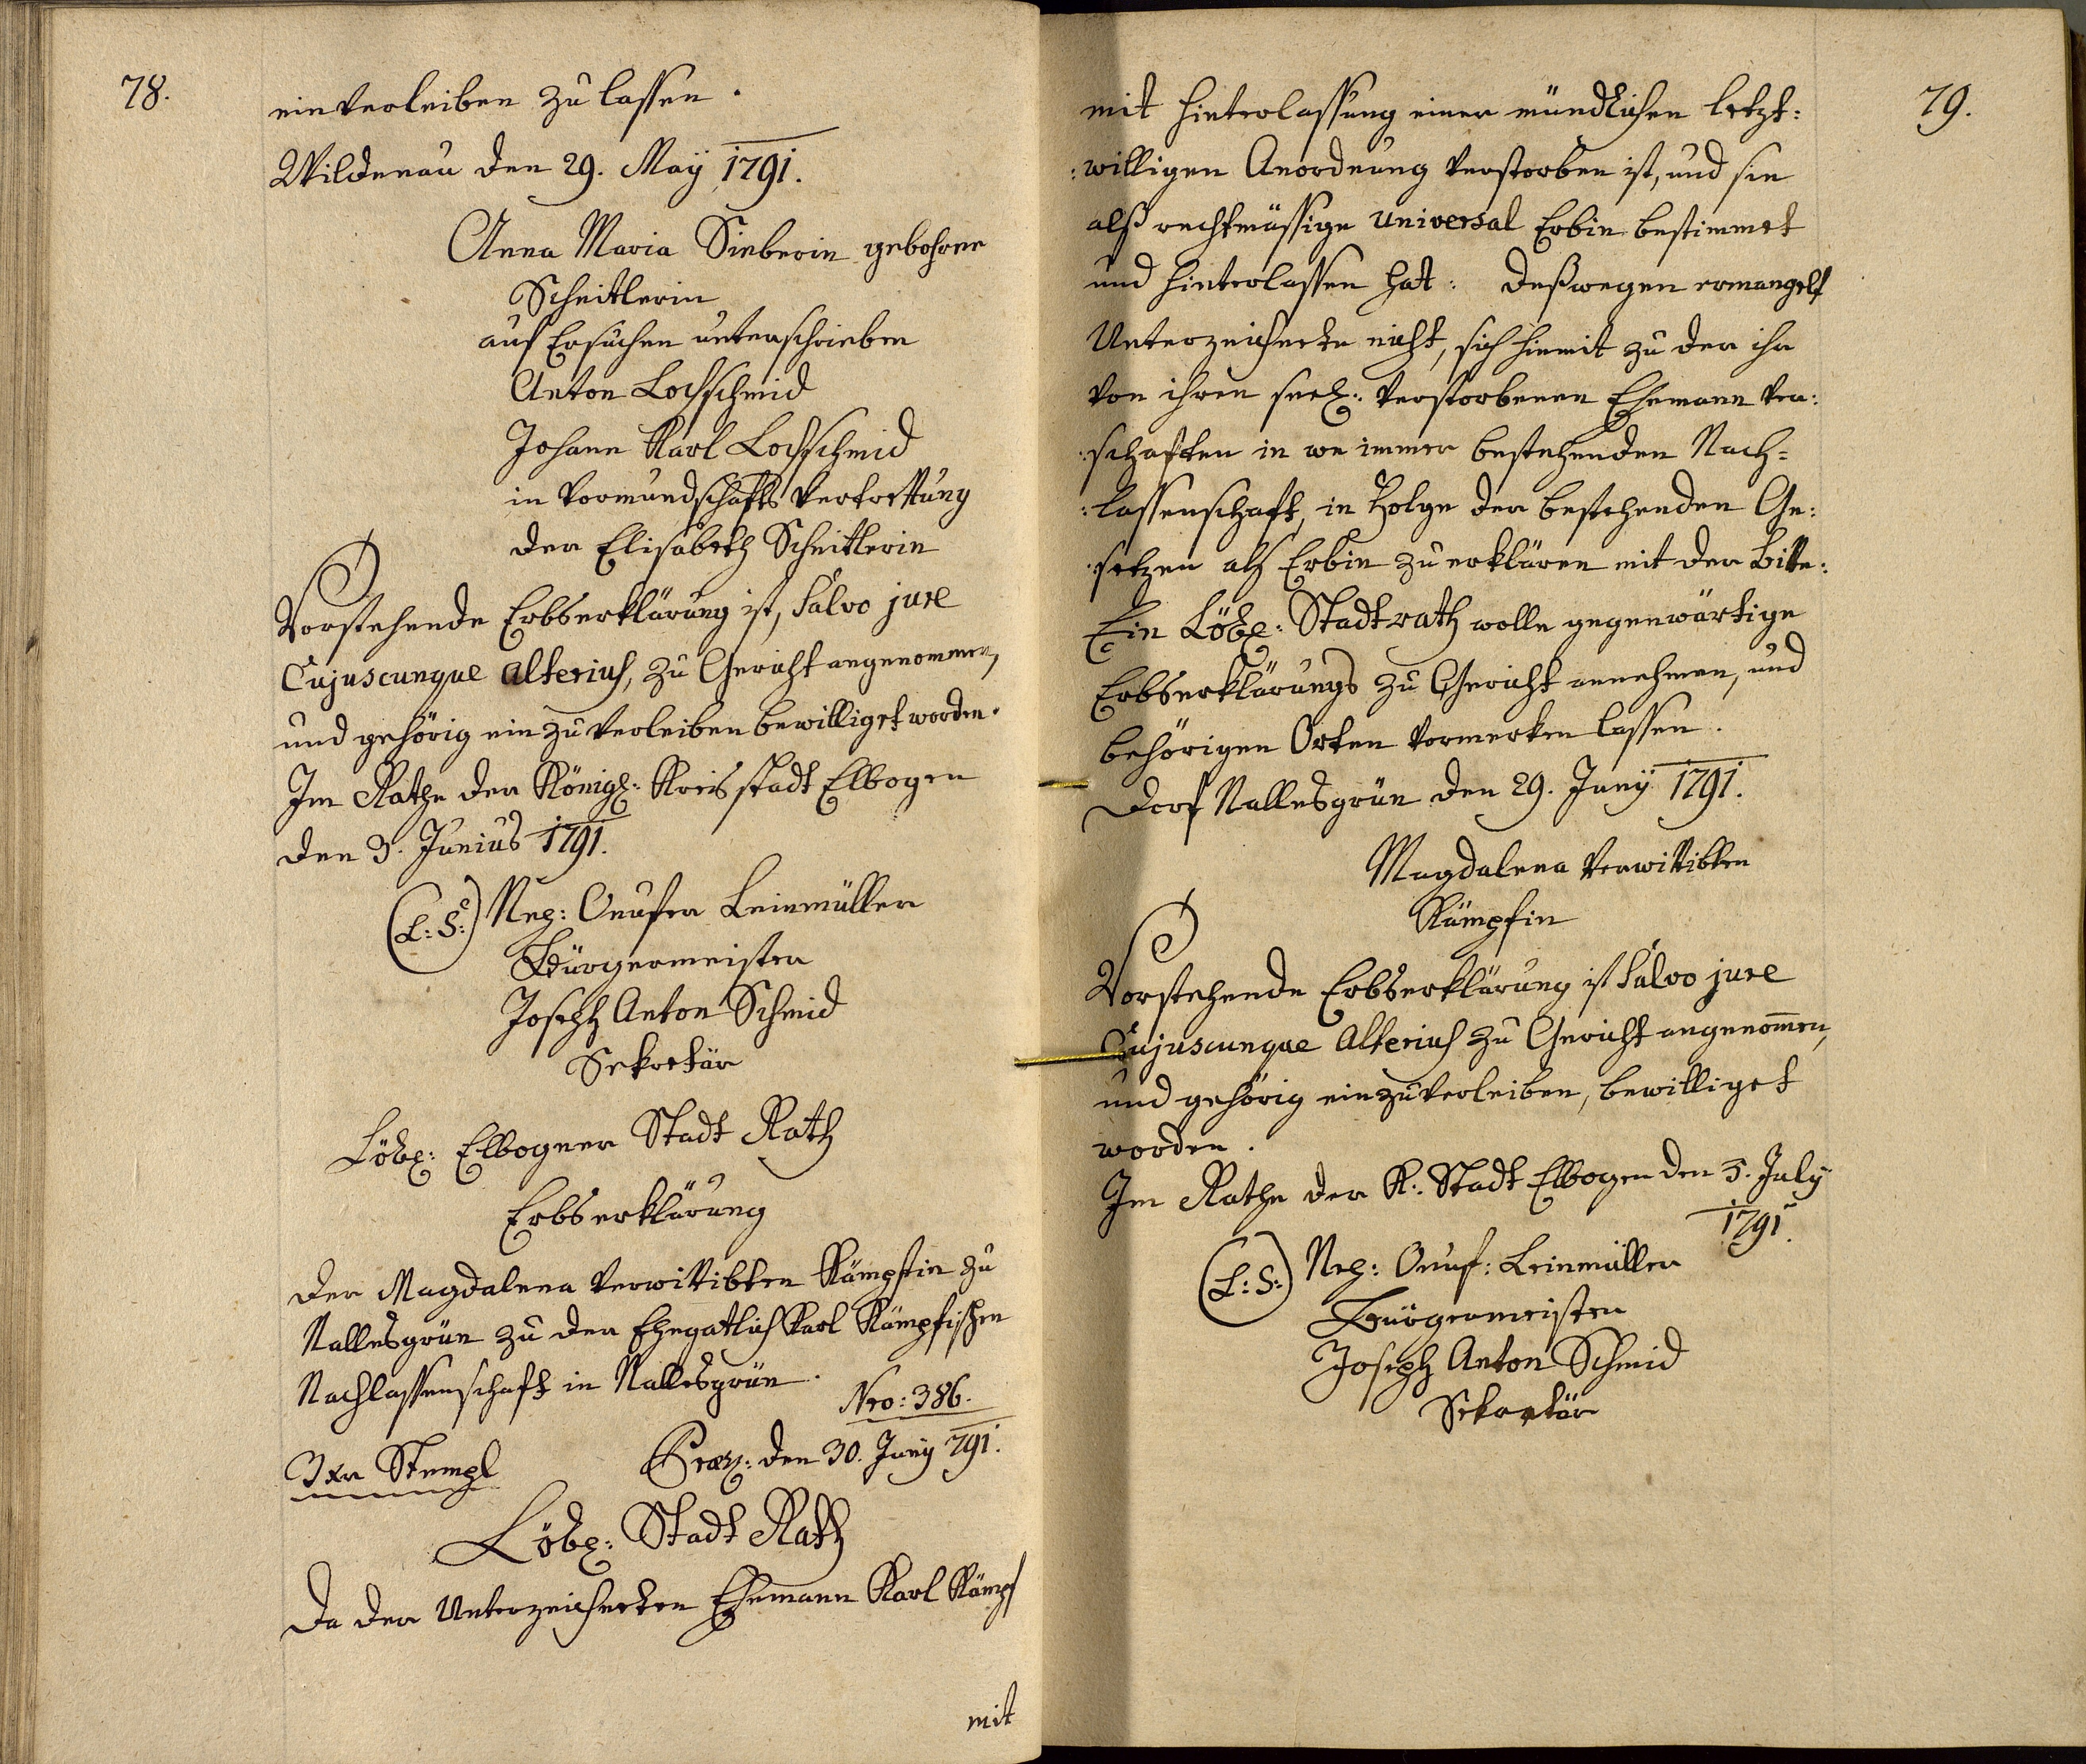 78.
einverleiben zu lassen.
Wildenau den 29. May 1791.
Anna Maria Sieberin gebohrne
Scheitlerin
auf Ersuchen unterschrieben
Anton Lochschmid
Johann Karl Lochschmid
in Vormundschafts Vertrettung
der Elisabeth Scheitlerin
Vorstehende Erbserklärung ist, Salvo jure
Cujuscunque alterius, zu Gericht angenommen,
und gehörig einzuverleiben bewilliget worden.
Im Rathe der Königl: Kreisstadt Elbogen
den 3. Junius 1791.
(L: S:) Nep: Onufer Leinmüller
Bürgermeister
Joseph Anton Schmid
Sekretär
Löbl: Elbogner Stadt Rath
Erbserklärung
der Magdalena verwittibten Kämpfin zu
Nallesgrün zu der Ehegatlich Karl Kämpfischen
Nachlassenschaft in Nallesgrün.
Nro: 386.
3 xr Stempl Praes: den 30. Juny 791.
Löbl: Stadt Rath
Da der Unterzeichneten Ehemann Karl Kämpf
mit
79.
mit Hinterlassung einer mündlichen letzt:
:willigen Anordnung verstorben ist, und sie
alß rechtmässige universal Erbin bestimmet
und hinterlassen hat: deßwegen ermangelt
Unterzeichnete nicht, sich hiemit zu der ihr
von ihren seel: verstorbenen Ehemann ver:
:schaften in wo immer bestehenden Nach=
:lassenschaft, in Folge der bestehenden Ge:
:setzen als Erbin zu erklären mit der Bitte:
Ein Löbl: Stadtrath wolle gegenwärtige
Erbserklärungs zu Gericht annehmen, und
behörigen Orten vormerken lassen.
Dorf Nallesgrün den 29. Juny 1791.
Magdalena verwittibten
Kämpfin
Vorstehende Erbserklärung ist Salvo jure
Cujuscunque Alterius zu Gericht angenomen,
und gehörig einzuverleiben, bewilliget
worden.
Im Rathe der K: Stadt Elbogen den 5. July
1791.
(L: S:) Nep: Onuf: Leinmüller
Bürgermeister
Joseph Anton Schmid
Sekretär